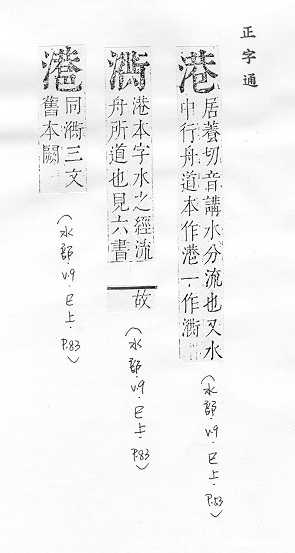 正字通
港
居養切音講水分流也又水
中行舟道本作港一作
（水部·v.9·巳上·P.83）
港本字水之經流
舟所道也見六書
故
（水部·v.9·巳上·P.83）
同三文
舊本闕
（水部·v.9·巳上·P.83）